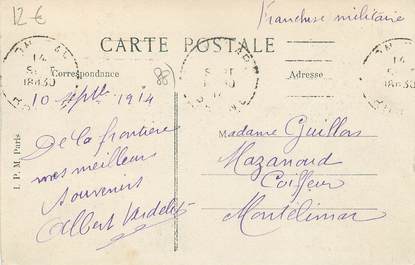 12 €
Franchise militaire
CARTE POSTALE
Correspondance
Adresse
10 septbr 1914
De la frontière
mes meilleurs
souvenirs
Albert
Madame Guillos
Mazanoud
Coiffeur
Montélimar
I. P. M. Paris
14
18H30
88